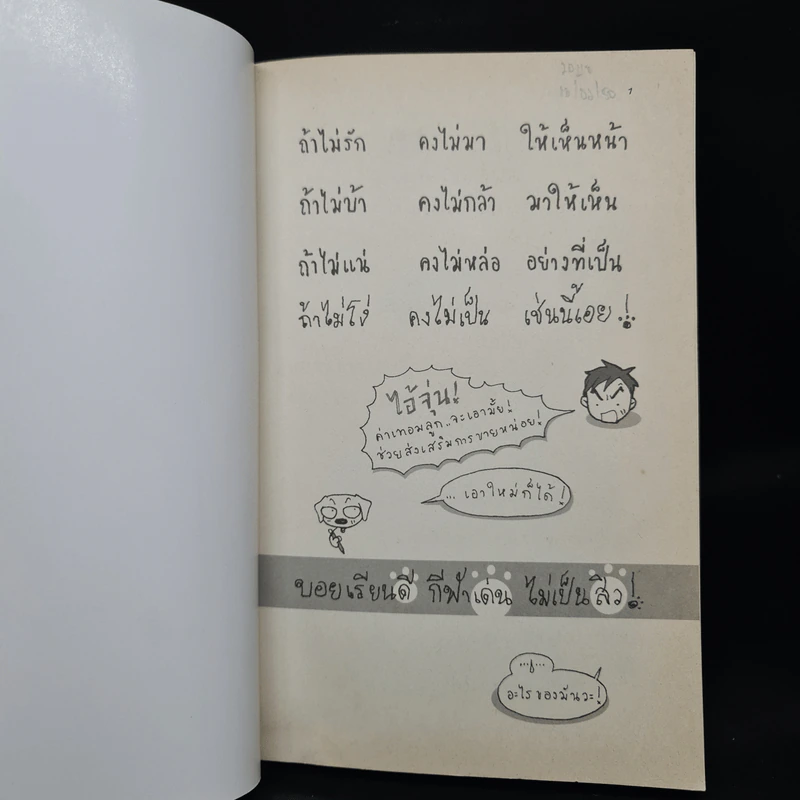 ถ้าไม่รัก คงไม่มา ให้เห็นหน้า
ถ้าไม่บ้า คงไม่กล้า มาให้เห็น
ถ้าไม่แน่ คงไม่หล่อ อย่างที่เป็น
ถ้าไม่โง่ คงไม่เป็น เช่นนี้เอย..!
ไอ้จุ่น!
ค่าเทอมลูก..จะเอามั้ย!
ช่วยส่งเสริมการขายหน่อย!
... เอาใหม่ก็ได้!
บอยเรียนดี กีฬาเด่น ไม่เป็นสิว!
อะไรของมันวะ!